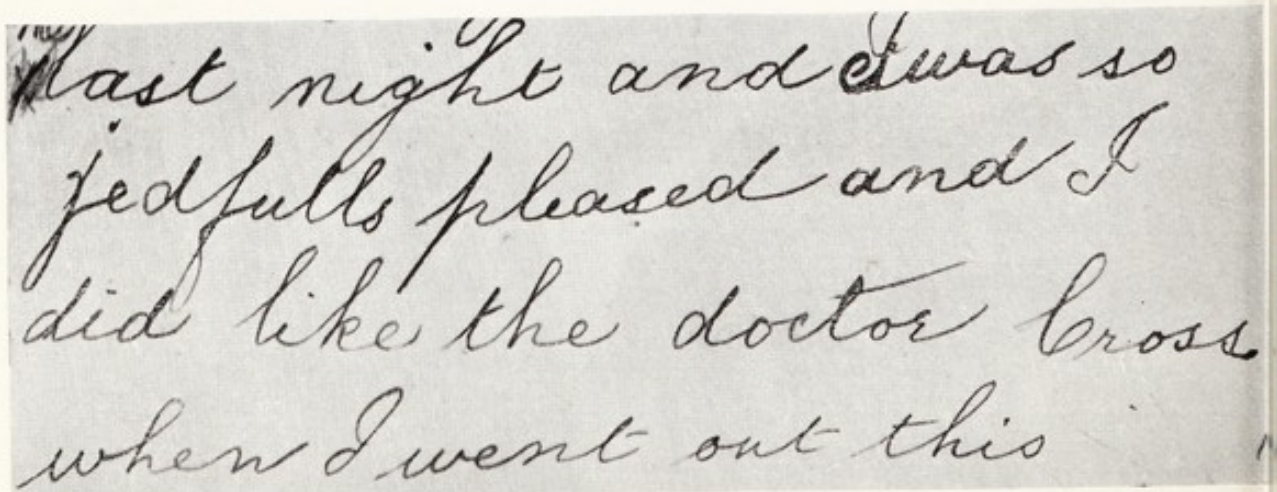 last night and I was so
jedfulls pleased and I
did like the doctor Cross
when I went out this